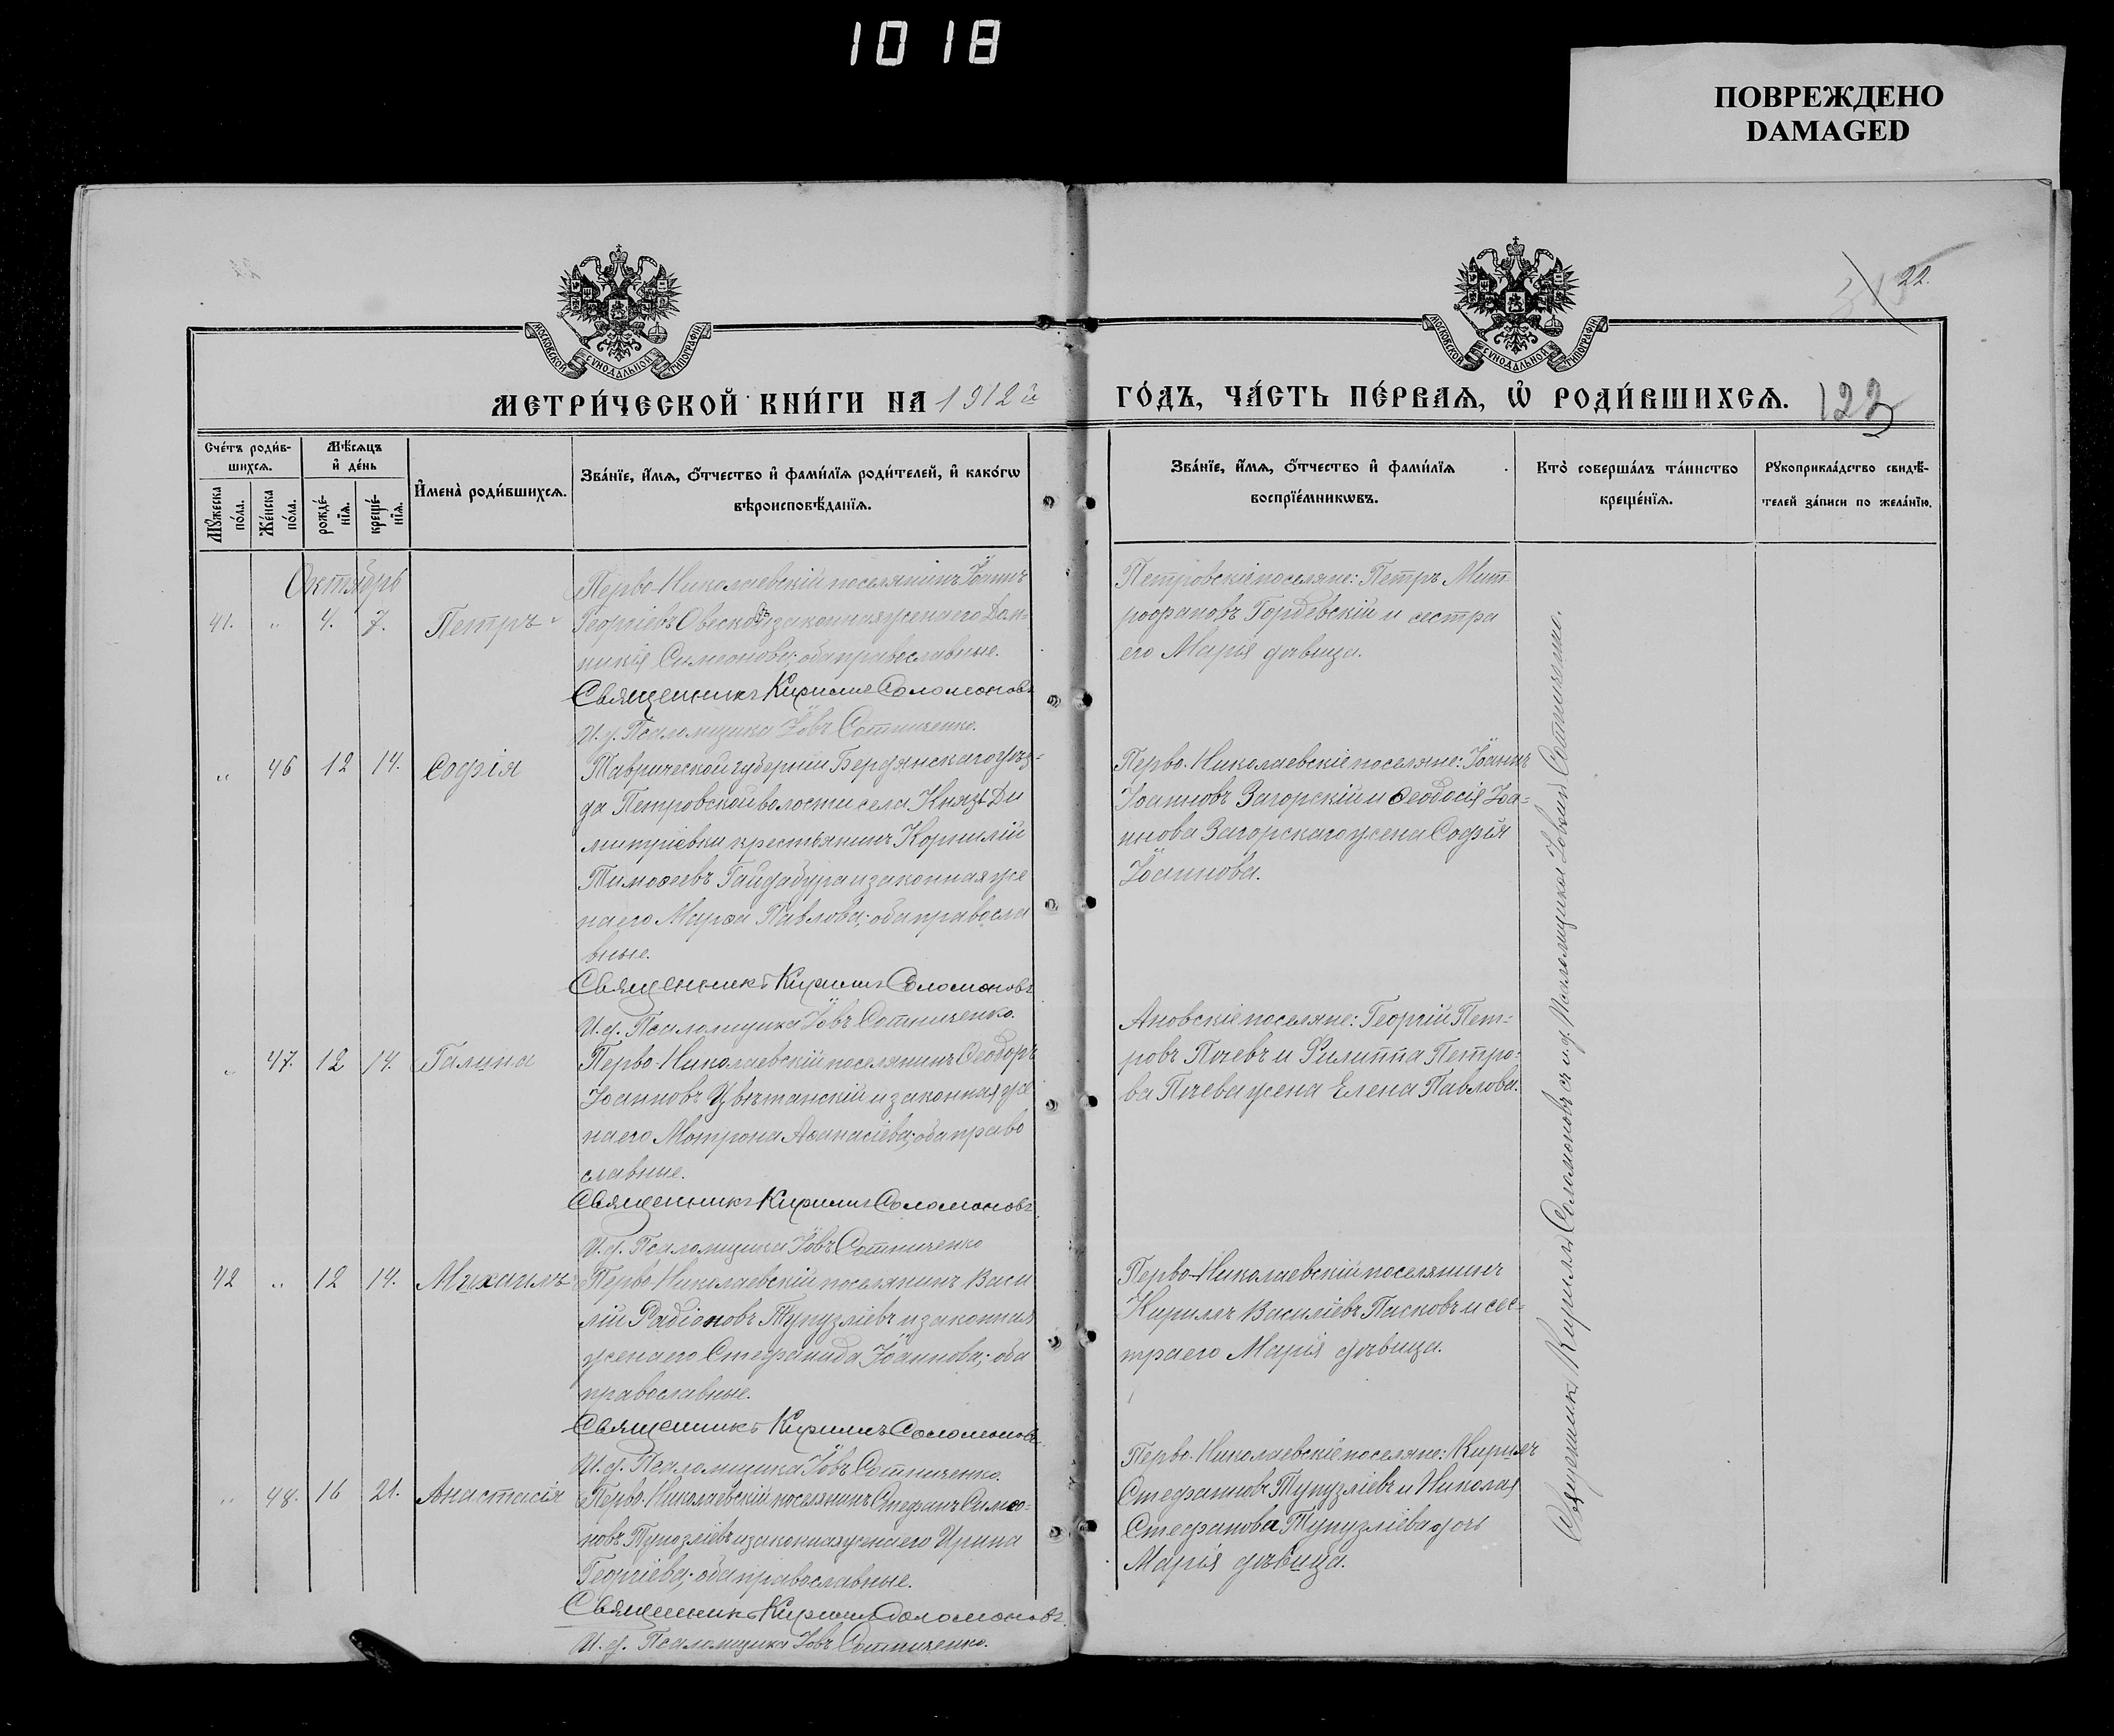 1018
ПОВРЕЖДЕНО
DAMAGED
22.
МОСКОВСКОЙ СѴНОДАЛЬНОЙ ТИПОГРАФІИ
МОСКОВСКОЙ СѴНОДАЛЬНОЙ ТИПОГРАФІИ
МЕТРИ́ЧЕСКОЙ КНИ́ГИ НА 1912й
ГО́ДЪ, ЧА́СТЬ ПЕ́РВАѦ, Ѡ҆ РОДИ́ВШИХСѦ. 122
Сче́тъ роди́в-
шихсѧ.
Мѣ́сѧцъ
и҆ де́нь
Мꙋ́жеска
по́ла.
Же́нска
по́ла.
рожде́-
нїѧ.
креще́-
нїѧ.
И҆мена̀ роди́вшихсѧ.
Зва́нїе, и҆́мѧ, ѻ҆́тчество и҆ фами́лїѧ роди́телей, и҆ како́гѡ
вѣроисповѣ́данїѧ.
Зва́нїе, и҆́мѧ, ѻ҆́тчество и҆ фами́лїѧ
воспрїе́мникѡвъ.
Кто̀ соверша́лъ та́инство
креще́нїѧ.
Рꙋкоприкла́дство свидѣ́-
телей за́писи по жела́нїю.
Октябрь
41. " 4. 7. Петръ
Перво-Николаевскій поселянинъ Іоаннъ
Георгіевъ и законная жена его Дом-
никія Симеонова; оба православные.
Священникъ Кириллъ Соломоновъ
И.д. Псаломщика Іовъ Сотниченко.
Петровскіе поселяне: Петръ Мит
рофановъ Гордѣевскій и сестра
его Марія дѣвица.
" 46 12 14. Софія
Таврической губерніи Бердянскаго уѣз-
да Петровской волости села Князь Ди
митріевки крестьянинъ Корнилій
Тимоѳеевъ Гайдабура и законная же
на его Марѳа Павлова; оба правосла
вные.
Священникъ Кириллъ Соломоновъ
И.д. Псаломщика Іовъ Сотниченко.
Перво-Николаевскіе поселяне: Іоаннъ
Іоанновъ Загорскій и Ѳеодосія Іоа-
ннова Загорскаго жена Софія
Іоаннова.
" 47. 12 14. Галина
Перво-Николаевскій поселянинъ Ѳеодоръ
Іоанновъ Цвѣтанскій и законная же
на его Мотрона Аѳанасіева; оба право
славные.
Священникъ Кириллъ Соломоновъ.
И.д. Псаломщика Іовъ Сотниченко
Ановскіе поселяне: Георгій Пет-
ровъ Пчевъ и Филиппа Петро-
ва Пчева жена Елена Павлова.
42 " 12 14. Михаилъ
Перво-Николаевскій поселянинъ Васи
лій Радіоновъ Тупузліевъ и законная
жена его Стефанида Іоаннова; оба
православные.
Священникъ Кириллъ Соломоновъ.
И.д. Псаломщика Іовъ Сотниченко.
Перво-Николаевскій поселянинъ
Кириллъ Василіевъ Пасковъ и сес-
тра его Марія дѣвица.
" 48. 16 21. Анастасія
Перво-Николаевскій поселянинъ Стефанъ Симео-
новъ Тупозліевъ и законная жена его Ирина
Георгіева; оба православные.
Священникъ Кириллъ Соломоновъ.
И.д. Псаломщика Іовъ Сотниченко.
Перво-Николаевскіе поселяне: Кириллъ
Стефановъ Тупузліевъ и Николая
Стефанова Тупузліева дочь
Марія дѣвица.
Священникъ Кириллъ Соломоновъ съ и.д. Псаломщика Іовомъ Сотниченко.